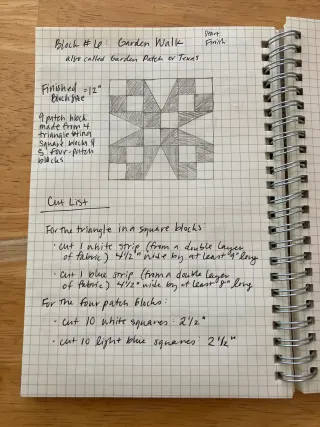 Block #6: Garden Walk
Start
Finish
also called Garden Patch or Texas
Finished =12"
Block Size
9 patch block
made from 4
triangle in a
square blocks &
5 four-patch
blocks
Cut List
For the triangle in a square blocks
· Cut 1 white strip (from a double layer
of fabric) 4 1/2" wide by at least 9" long
· Cut 1 blue strip (from a double layer
of fabric) 4 1/2" wide by at least 8" long
For the four patch blocks:
· Cut 10 white squares: 2 1/2"
· Cut 10 light blue squares: 2 1/2"